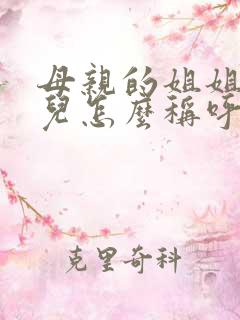 母親的姐姐
兒怎麼稱呼
克里奇科